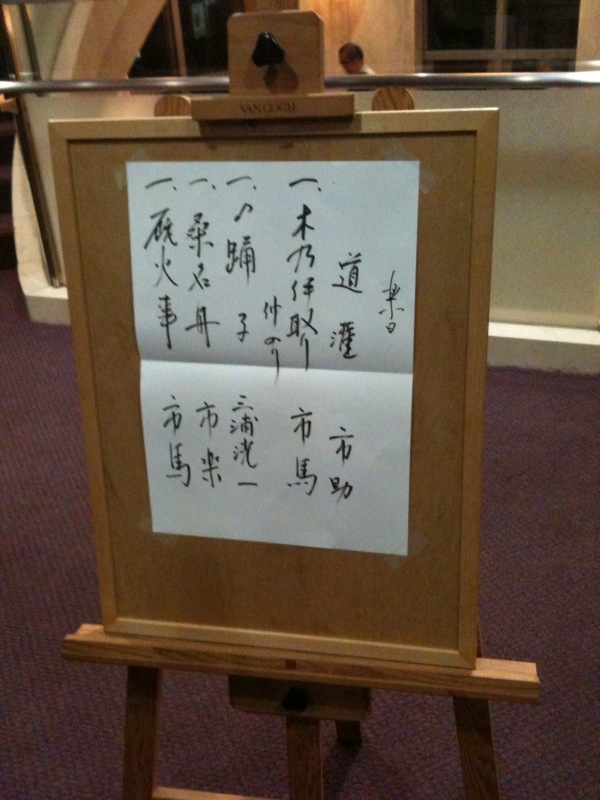 VAN GOGH
道灌 市助
一、木乃伊取り 市馬
仲入り
一、踊子 三浦洸一
一、桑名舟 市楽
一、厩火事 市馬